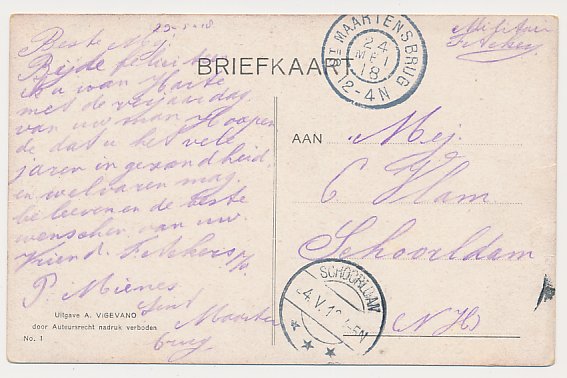 23-5-18
Beste Nelij
Bijde feliciteer
ik u van Harte
met de verjaardag
van uw man Hoopen
de dat u het vele
jaren in gezondheid
en welvaren mag
beleeven en de beste
wenschen van uw
Vriend F. Akkers
P Mienes
Sint
Maarten
brug
Uitgave A. VIGEVANO
door Auteursrecht nadruk verboden.
No. 1
BRIEFKAART
ST MAARTENSBRUG
24
MEI
18
12-4N
AAN
Mej.
C. Vlam
Schoorldam
N H
SCHOORLDAM
4.V.1 4-5N